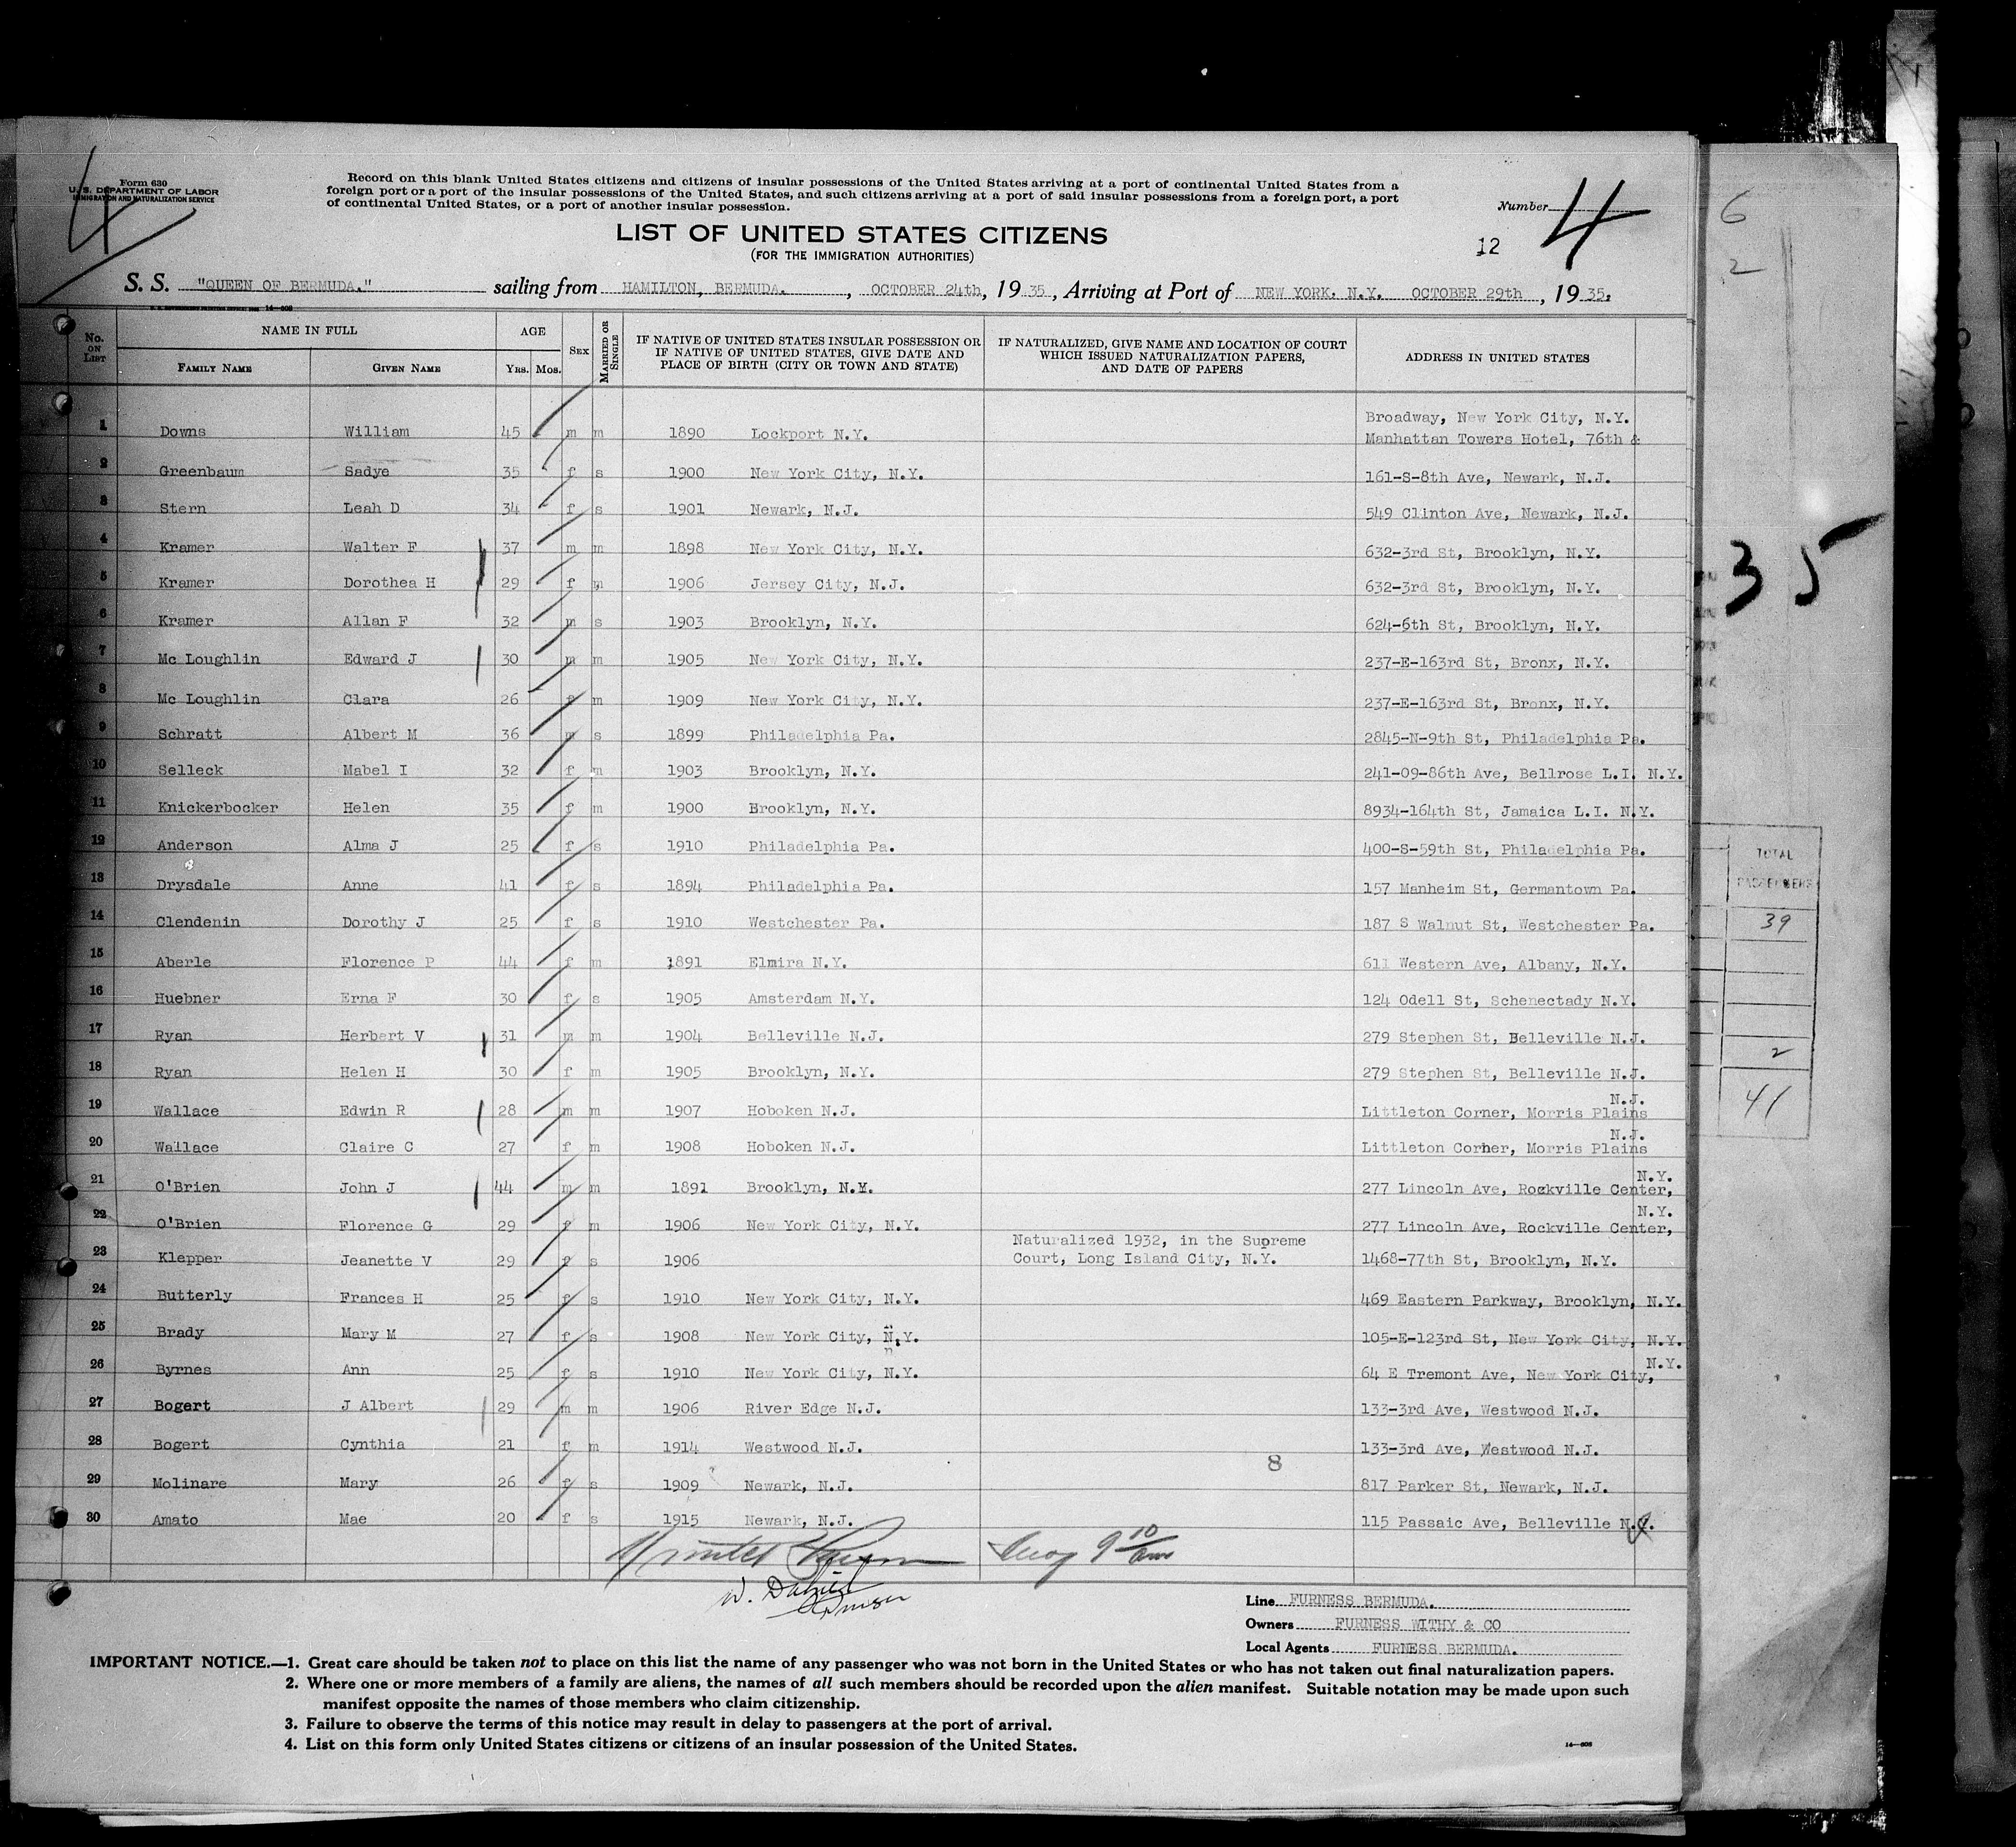 Form 630
U. S. DEPARTMENT OF LABOR
IMMIGRATION AND NATURALIZATION SERVICE
4
Record on this blank United States citizens and citizens of insular possessions of the United States arriving at a port of continental United States from a
foreign port or a port of the insular possessions of the United States, and such citizens arriving at a port of said insular possessions from a foreign port, a port
of continental United States, or a port of another insular possession.
Number 4
LIST OF UNITED STATES CITIZENS
(FOR THE IMMIGRATION AUTHORITIES)
12
S. S. "QUEEN OF BERMUDA." sailing from HAMILTON, BERMUDA. , OCTOBER 24th, 1935, Arriving at Port of NEW YORK. N.Y. OCTOBER 29th , 1935.
14-608
No. ON LIST
NAME IN FULL
FAMILY NAME GIVEN NAME
AGE
YRS. MOS.
SEX
MARRIED OR SINGLE
IF NATIVE OF UNITED STATES INSULAR POSSESSION OR
IF NATIVE OF UNITED STATES, GIVE DATE AND
PLACE OF BIRTH (CITY OR TOWN AND STATE)
IF NATURALIZED, GIVE NAME AND LOCATION OF COURT
WHICH ISSUED NATURALIZATION PAPERS,
AND DATE OF PAPERS
ADDRESS IN UNITED STATES
Broadway, New York City, N.Y.
1 Downs William 45 m m 1890 Lockport N.Y. Manhattan Towers Hotel, 76th &
2 Greenbaum Sadye 35 f s 1900 New York City, N.Y. 161-S-8th Ave, Newark, N.J.
3 Stern Leah D 34 f s 1901 Newark, N.J. 549 Clinton Ave, Newark, N.J.
4 Kramer Walter F 37 m m 1898 New York City, N.Y. 632-3rd St, Brooklyn, N.Y.
5 Kramer Dorothea H 29 f m 1906 Jersey City, N.J. 632-3rd St, Brooklyn, N.Y.
6 Kramer Allan F 32 m s 1903 Brooklyn, N.Y. 624-6th St, Brooklyn, N.Y.
7 Mc Loughlin Edward J 30 m m 1905 New York City, N.Y. 237-E-163rd St, Bronx, N.Y.
8 Mc Loughlin Clara 26 f m 1909 New York City, N.Y. 237-E-163rd St, Bronx, N.Y.
9 Schratt Albert M 36 m s 1899 Philadelphia Pa. 2845-N-9th St, Philadelphia Pa.
10 Selleck Mabel I 32 f m 1903 Brooklyn, N.Y. 241-09-86th Ave, Bellrose L.I. N.Y.
11 Knickerbocker Helen 35 f m 1900 Brooklyn, N.Y. 8934-164th St, Jamaica L.I. N.Y.
12 Anderson Alma J 25 f s 1910 Philadelphia Pa. 400-S-59th St, Philadelphia Pa.
13 Drysdale Anne 41 f s 1894 Philadelphia Pa. 157 Manheim St, Germantown Pa.
14 Clendenin Dorothy J 25 f s 1910 Westchester Pa. 187 S Walnut St, Westchester Pa.
15 Aberle Florence P 44 f m 1891 Elmira N.Y. 611 Western Ave, Albany, N.Y.
16 Huebner Erna F 30 f s 1905 Amsterdam N.Y. 124 Odell St, Schenectady N.Y.
17 Ryan Herbert V 31 m m 1904 Belleville N.J. 279 Stephen St, Belleville N.J.
18 Ryan Helen H 30 f m 1905 Brooklyn, N.Y. 279 Stephen St, Belleville N.J.
N.J.
19 Wallace Edwin R 28 m m 1907 Hoboken N.J. Littleton Corner, Morris Plains
N.J.
20 Wallace Claire C 27 f m 1908 Hoboken N.J. Littleton Corher, Morris Plains
N.Y.
21 O'Brien John J 44 m m 1891 Brooklyn, N.Y. 277 Lincoln Ave, Rockville Center,
N.Y.
22 O'Brien Florence G 29 f m 1906 New York City, N.Y. 277 Lincoln Ave, Rockville Center,
Naturalized 1932, in the Supreme
23 Klepper Jeanette V 29 f s 1906 Court, Long Island City, N.Y. 1468-77th St, Brooklyn, N.Y.
24 Butterly Frances H 25 f s 1910 New York City, N.Y. 469 Eastern Parkway, Brooklyn, N.Y.
25 Brady Mary M 27 f s 1908 New York City, N.Y. 105-E-123rd St, New York City, N.Y.
N.Y.
26 Byrnes Ann 25 f s 1910 New York City, N.Y. 64 E Tremont Ave, New York City,
27 Bogert J Albert 29 m m 1906 River Edge N.J. 133-3rd Ave, Westwood N.J.
28 Bogert Cynthia 21 f m 1914 Westwood N.J. 133-3rd Ave, Westwood N.J.
8
29 Molinare Mary 26 f s 1909 Newark, N.J. 817 Parker St, Newark, N.J.
30 Amato Mae 20 f s 1915 Newark, N.J. 115 Passaic Ave, Belleville N.J.
9 10 am
Line FURNESS BERMUDA.
Owners FURNESS WITHY & CO
Local Agents FURNESS BERMUDA.
IMPORTANT NOTICE.—1. Great care should be taken not to place on this list the name of any passenger who was not born in the United States or who has not taken out final naturalization papers.
2. Where one or more members of a family are aliens, the names of all such members should be recorded upon the alien manifest. Suitable notation may be made upon such
manifest opposite the names of those members who claim citizenship.
3. Failure to observe the terms of this notice may result in delay to passengers at the port of arrival.
4. List on this form only United States citizens or citizens of an insular possession of the United States.
14-608
6
2
35
TOTAL
PASSENGERS
39
2
41